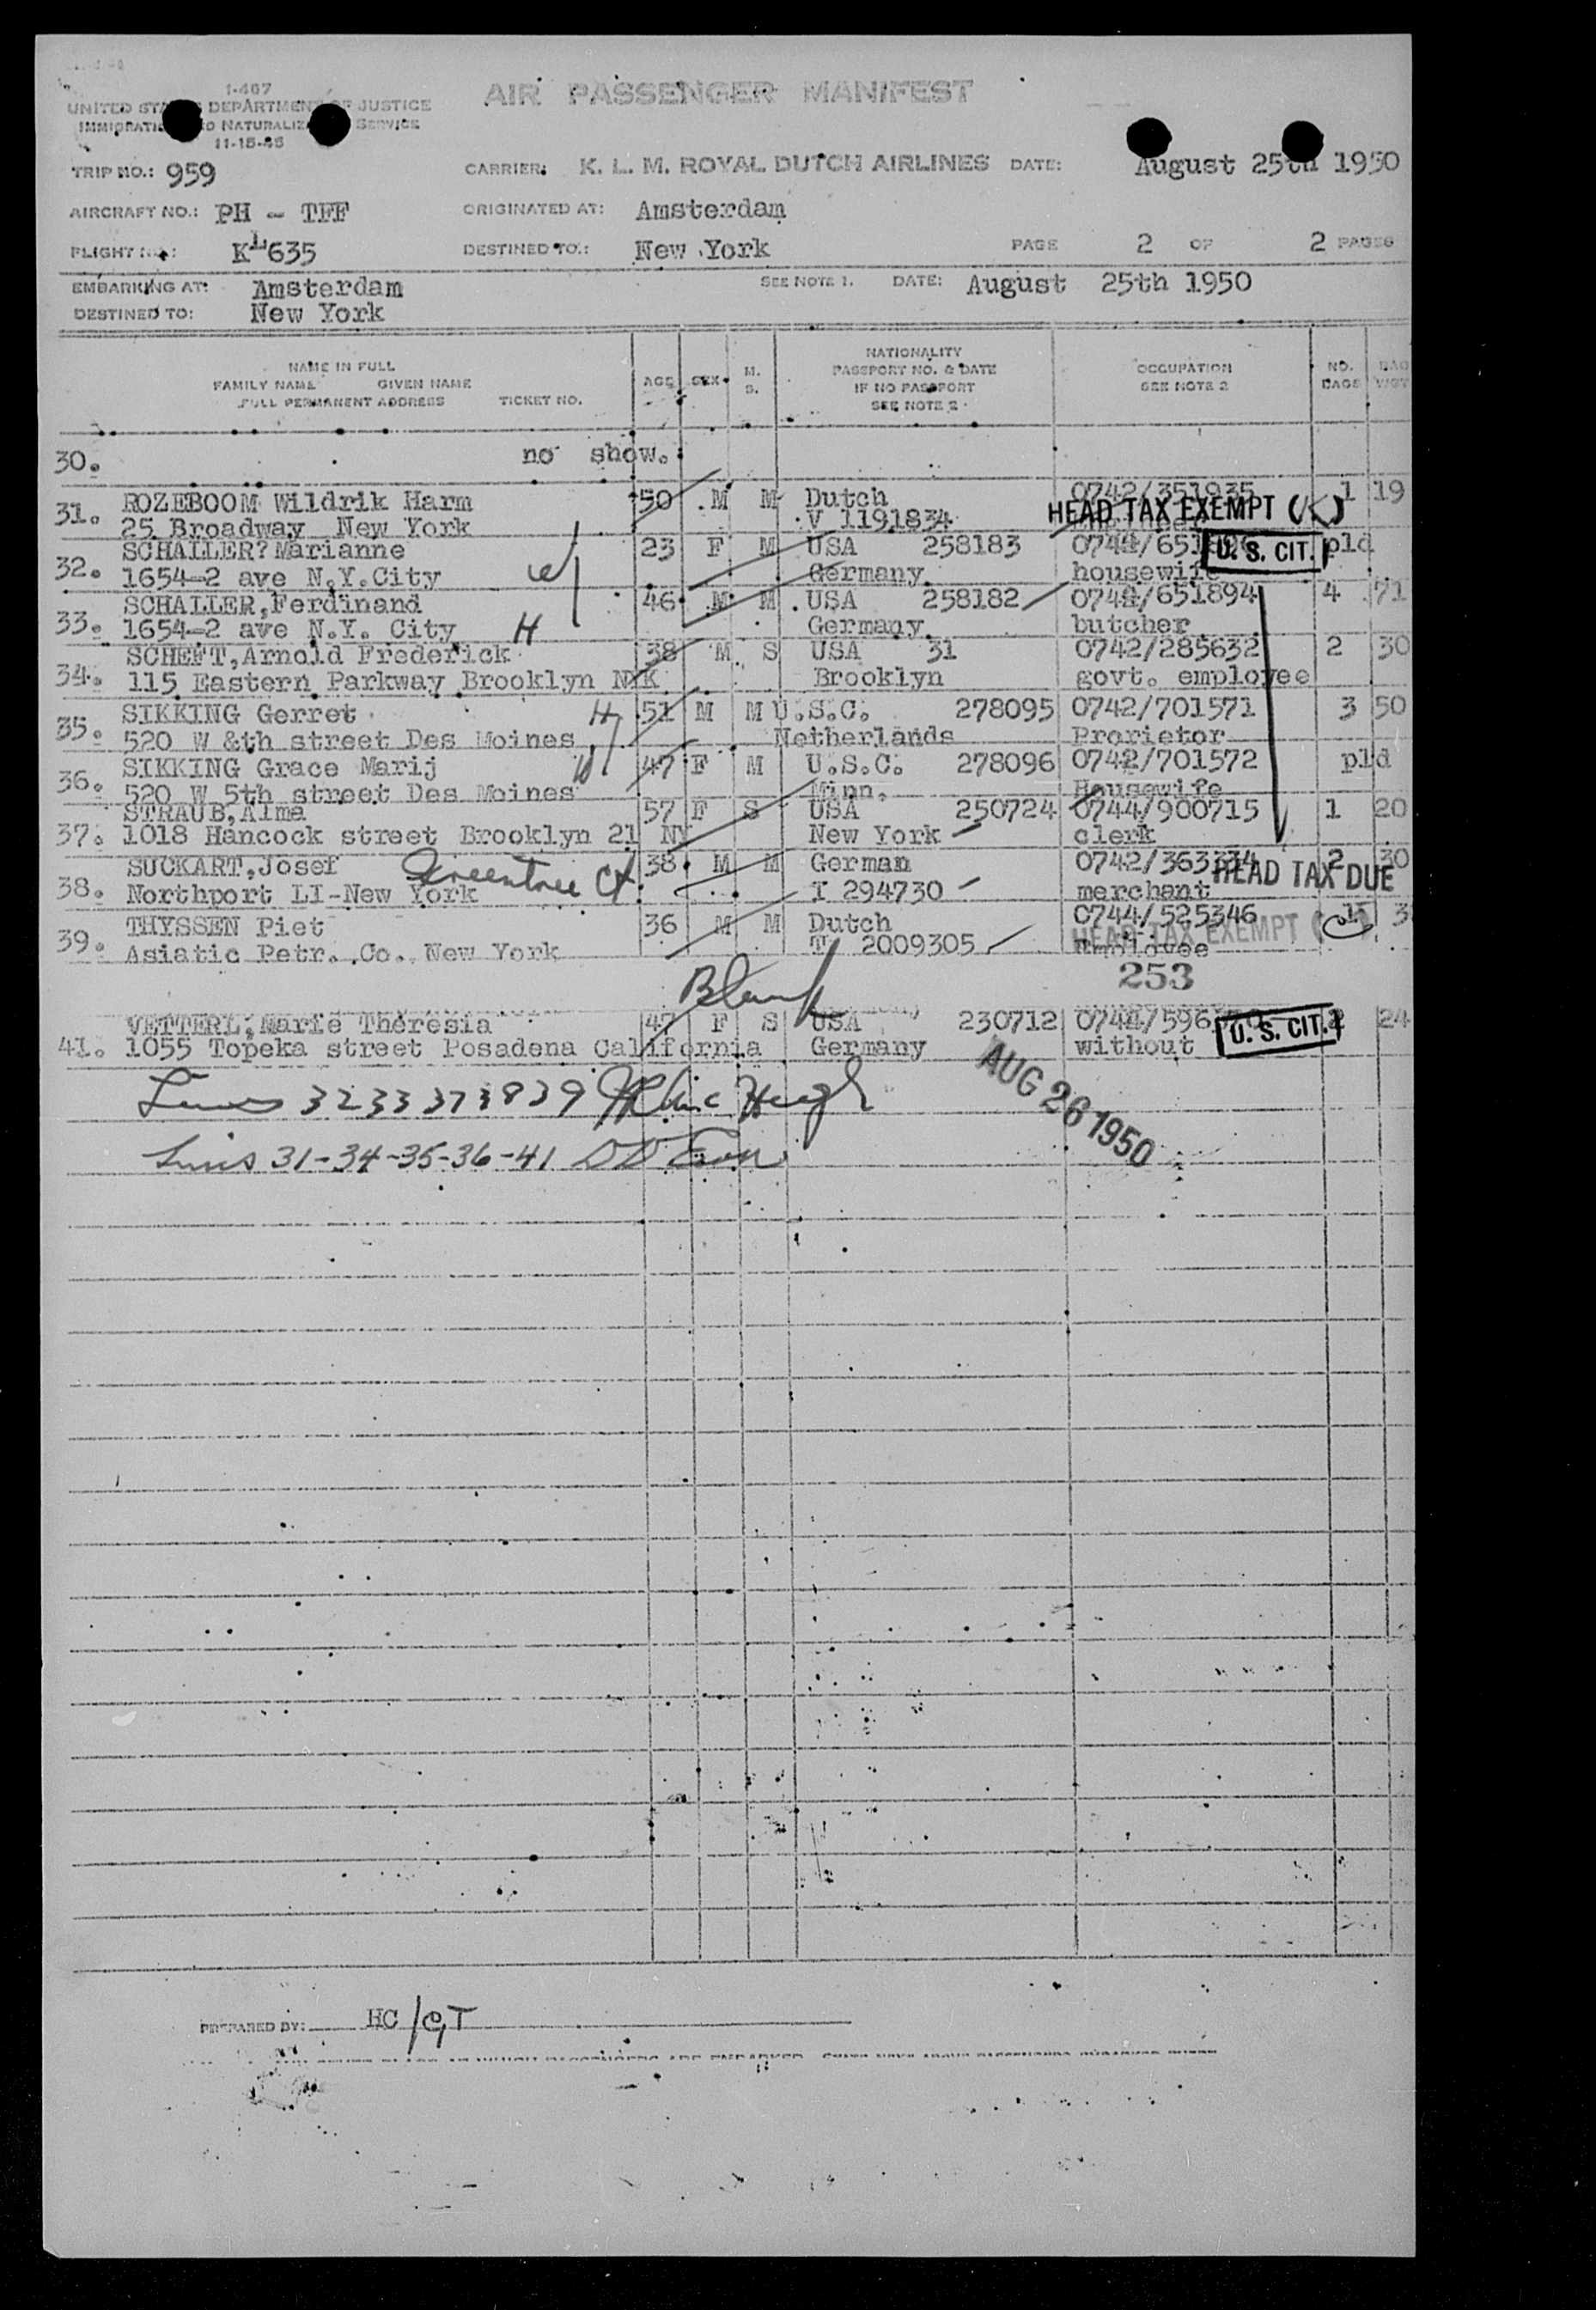 I-467
UNITED STATES DEPARTMENT OF JUSTICE
IMMIGRATION AND NATURALIZATION SERVICE
11-15-45
AIR PASSENGER MANIFEST
TRIP NO.: 959 CARRIER: K. L. M. ROYAL DUTCH AIRLINES DATE: August 25th 1950
AIRCRAFT NO.: PH - TFF ORIGINATED AT: Amsterdam
FLIGHT NO.: KL635 DESTINED TO.: New York PAGE 2 OF 2 PAGES
EMBARKING AT: Amsterdam SEE NOTE 1. DATE: August 25th 1950
DESTINED TO: New York
NAME IN FULL
FAMILY NAME GIVEN NAME
FULL PERMANENT ADDRESS TICKET NO.
AGE SEX M. S.
NATIONALITY
PASSPORT NO. & DATE
IF NO PASSPORT
SEE NOTE 2
OCCUPATION
SEE NOTE 2
NO. BAGS
30. no show.
31. ROZEBOOM Wildrik Harm 50 M M Dutch 0742/351935 1 19
25 Broadway New York V 1191834 HEAD TAX EXEMPT (K)
32. SCHALLER?Marianne 23 F M USA 258183 U. S. CIT. pld
1654-2 ave N.Y.City Germany housewife
33. SCHALLER,Ferdinand 46 M M USA 258182 0744/651894 4 71
1654-2 ave N.Y. City H Germany butcher
34. SCHEFT,Arnold Frederick 38 M S USA 31 0742/285632 2 30
115 Eastern Parkway Brooklyn Brooklyn govt. employee
35. SIKKING Gerret H 51 M M U.S.C. 278095 0742/701571 3 50
520 W &th street Des Moines Netherlands Prorietor
36. SIKKING Grace Marij W 47 F M U.S.C. 278096 0742/701572 pld
520 W 5th street Des Moines Minn. Housewife
37. STRAUB,Alma 57 F S USA 250724 0744/900715 1 20
1018 Hancock street Brooklyn 21 NY New York clerk
38. SUCKART,Josef 38 M M German 2 30
Northport LI-New York I 294730 merchant HEAD TAX DUE
39. THYSSEN Piet 36 M M Dutch 0744/525346
Asiatic Petr. Co. New York 2009305 employee HEAD TAX EXEMPT
253
Blank
41. VETTERL,Marie Theresia 47 F S USA 230712 U. S. CIT. 24
1055 Topeka street Posadena California Germany without
AUG 26 1950
Lines 31-34-35-36-41
PREPARED BY: HC/CT